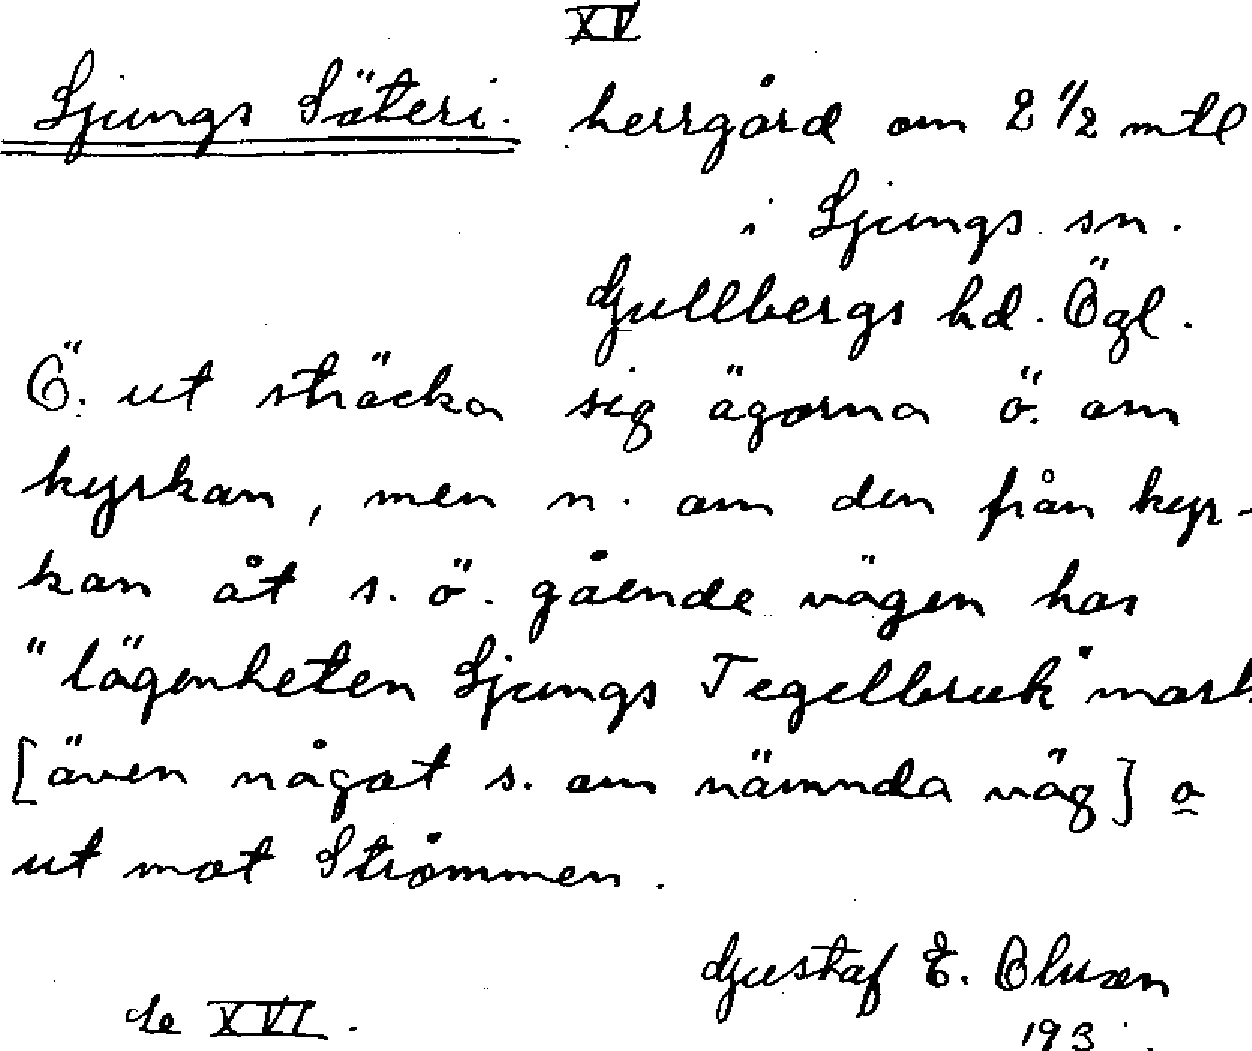 XV
Ljungs Säteri. herrgård om 2 1/2 mtl
i Ljungs sn.
Gullbergs hd. Ögl.
Ö. ut sträcka sig ägorna ö. om
kyrkan, men n. om den från kyr-
kan åt s. ö. gående vägen har
"lägenheten Ljungs Tegelbruk" mark
[även något s. om nämnda väg] o
ut mot Strömmen.
Gustaf E.
de XVI.
193